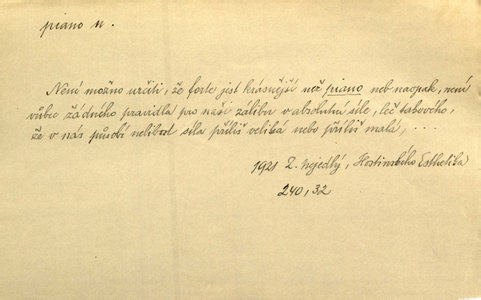 piano n.
Není možno určiti, že forte jest krásnější než piano neb naopak, není
vůbec žádného pravidla pro naši zálibu v absolutní síle, leč takového,
že v nás působí nelibost síla příliš veliká nebo příliš malá, ...
1921 Z. Nejedlý, Hostinského Esthetika
240, 32